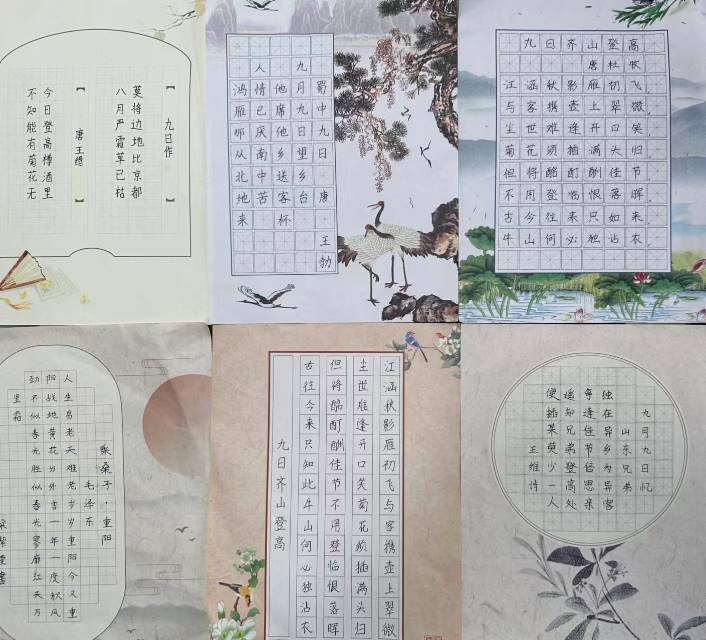 【 九日作 】
莫将边地比京都
八月严霜草已枯
【 唐·王缙 】
今日登高樽酒里
不知能有菊花无
蜀中九日 唐·王勃
九月九日望乡台
他席他乡送客杯
人情已厌南中苦
鸿雁那从北地来
九日齐山登高
唐杜牧
江涵秋影雁初飞
与客携壶上翠微.
尘世难逢开口笑
菊花须插满头归.
但将酩酊酬佳节
不用登临恨落晖.
古今往来只如来
牛山何必独沾衣.
采桑子·重阳
毛泽东
人生易老天难老岁岁重阳今又重
阳战地黄花分外香一年一度秋风
劲不似春光胜似春光寥廓江天万
里霜
江涵秋影雁初飞与客携壶上翠微
尘世难逢开口笑菊花须插满头归
但将酩酊酬佳节不用登临恨落晖
古往今来只如此牛山何必独沾衣
九日齐山登高
九月九日忆
山东兄弟
独在异乡为异客
每逢佳节倍思亲
遥知兄弟登高处
便插茱萸少一人
王维诗